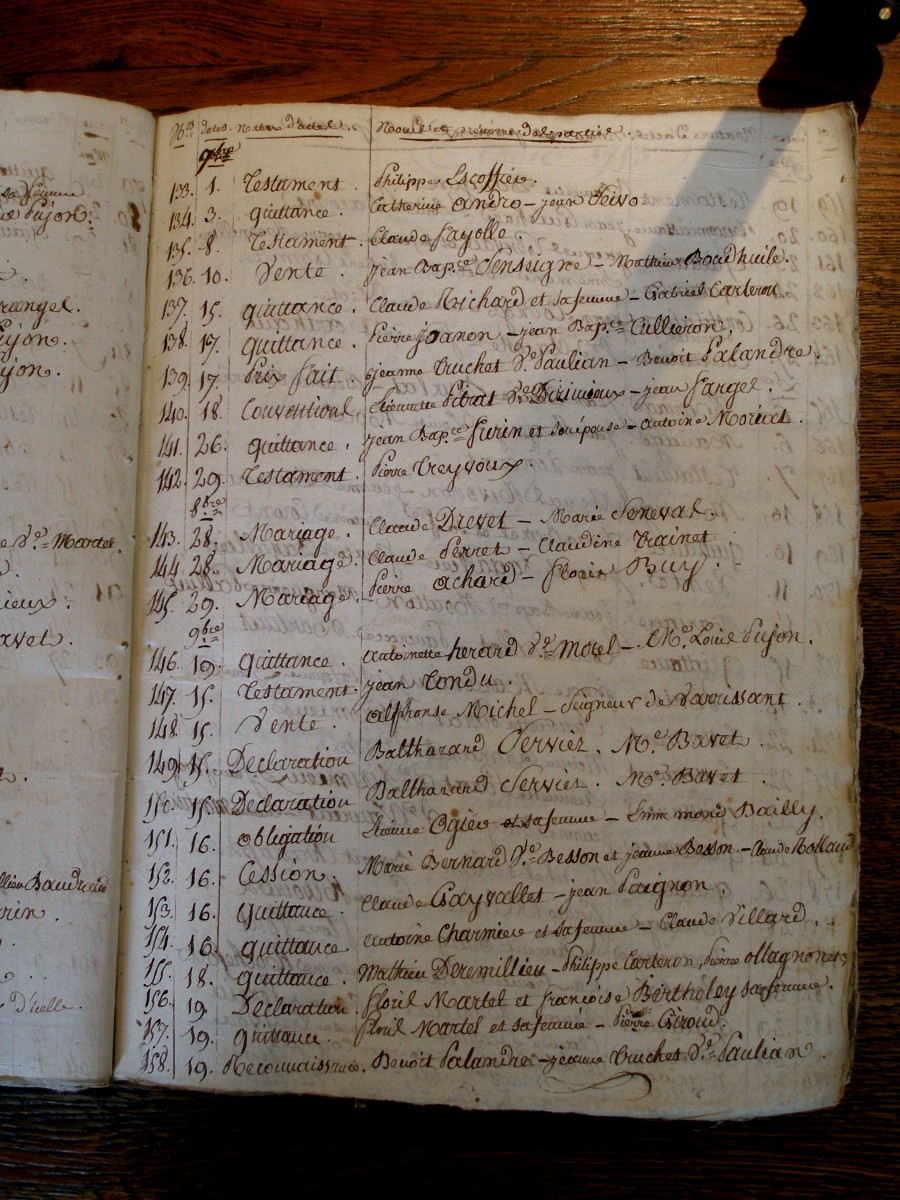 sa femme
Pujon.
Pijon.
jon.
Ve. Martel.
ieux.
avet.
Baudrand
rin.
N.os dates. Nature d'actes. Noms et prénoms des parties.
9bre
133. 1. Testament. Philippe Escoffier.
134. 3. quittance. Catherine andro – jean Peivo
135. 8. Testament. Claude fayolle.
136. 10. Vente. jean Bap.te Senseigne – Mathieu Boudhuile.
137. 15. quittance. Claude Richard et sa femme – Gabriel Carteron
138. 17. quittance. Pierre joanon – jean Bap.te Cullieron.
139. 17. Prix fait. jeanne Cruchet Ve. Paulian – Benoît Palandre.
140. 18. Conventional. Etiennette Pitrat Ve. Dizimieux – jean fargel.
141. 26. quittance. jean Bap.te furin et son épouse – antoine Moriat.
142. 29. Testament. Pierre Treyvoux.
8bre
143. 28. Mariage. Claude Drevet – Marie Seneval.
144. 28. Mariage. Claude Perret – Claudine Trainet
145. 29. Mariage. Pierre achard – floris Buy.
9bre
146. 19. quittance. Antoinette herard Ve. Motel – Me. Louis Pujon.
147. 15. Testament. jean Condu.
148. 15. Vente. alphonse Michel – Seigneur de Varrissant.
149. 15. Declaration Balthazard Servier. Me. Bavet.
150. 15. Declaration Balthazard Servier. Me. Bavet.
151. 16. obligation Etienne Ogier et sa femme – Emmonord Bailly.
152. 16. Cession. Marie Bernard Ve. Besson et jeanne Besson. – Claude Rolland
153. 16. quittance. Claude Gayvallet – jean Paignon.
154. 16. quittance antoine Charmier et sa femme – Claude Villard.
155. 18. quittance. Mathieu Deremillieu – Philippe Carteron, Pierre ollagnon
156. 19. Declaration. floril Martel et françoise Bertholey sa femme.
157. 19. quittance. floril Martel et sa femme – Pierre Giroud.
158. 19. Reconnaissance. Benoît Palandre – jeanne Cruchet Ve. Paulian.